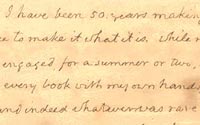 I have been 50. years making
to make it what it is. while
engaged for a summer or two.
every book with my own hands
and indeed whatever was rare